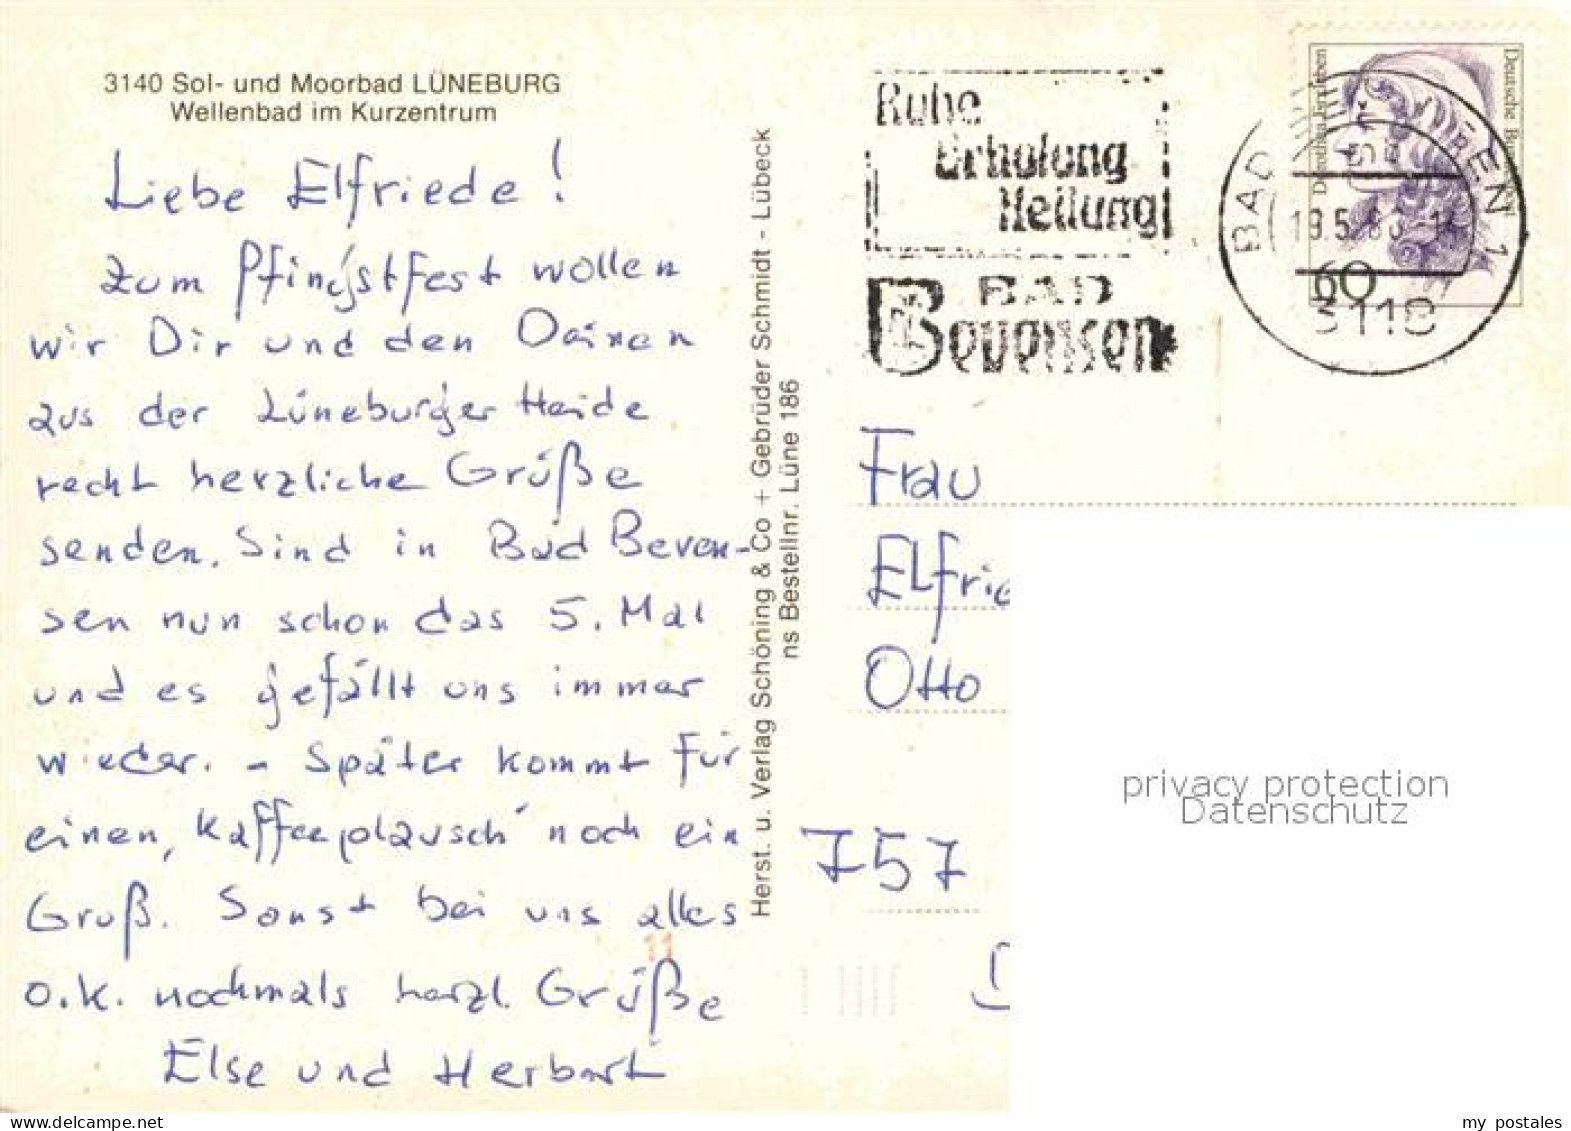 3140 Sol- und Moorbad LÜNEBURG
Wellenbad im Kurzentrum
Liebe Elfriede!
Zum Pfingstfest wollen
wir Dir und den Deinen
aus der Lüneburger Heide
recht herzliche Grüße
senden. Sind in Bad Beven-
sen nun schon das 5. Mal
und es gefällt uns immer
wieder. – Später kommt für
einen, Kaffeeplausch' noch ein
Gruß. Sonst bei uns alles
o.k. nochmals herzl. Grüße
Else und Herbert
Herst. u. Verlag Schöning & Co + Gebrüder Schmidt - Lübeck
ns Bestellnr. Lüne 186
Ruhe
Erholung
Heilung
BAD
Bevensen
BAD
EN 1
3118
Deutsche
Dorothea Erxleben
60
Frau
Elfrie
Otto
757
D
11
privacy protection
Datenschutz
www.delcampe.net
my_postales